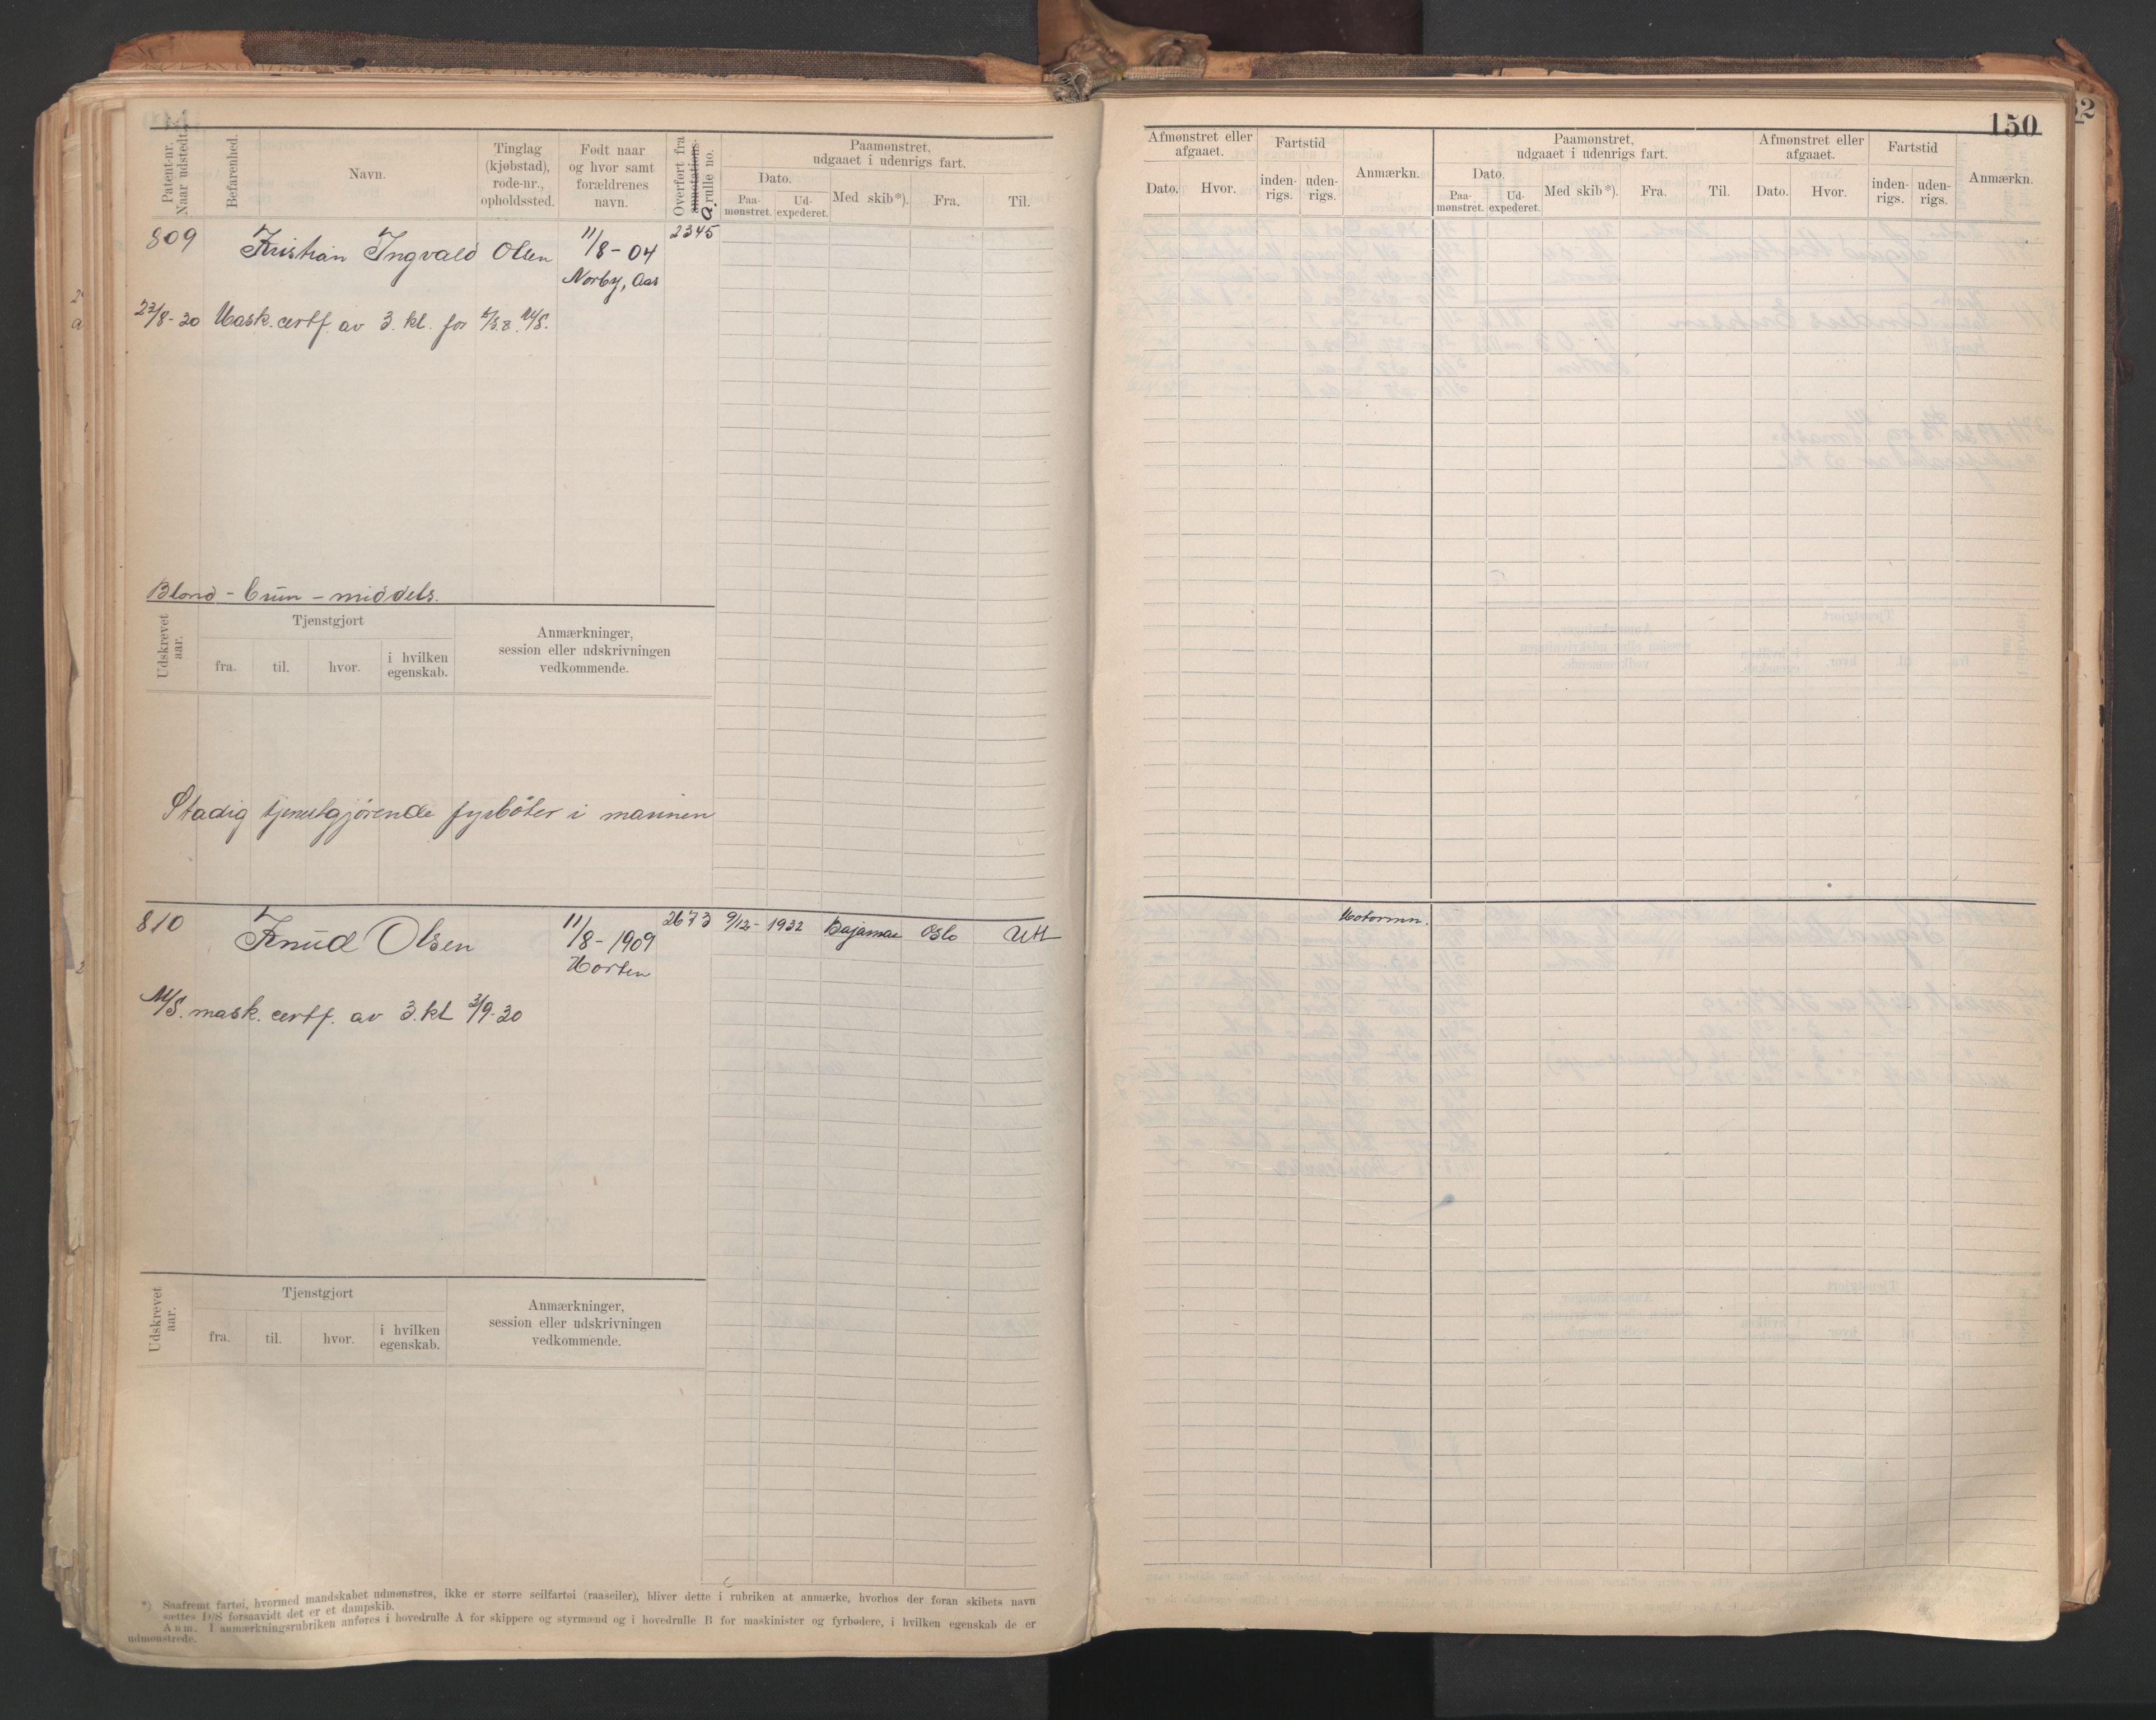 150
Patent-nr. Naar udstedt.
Befarenhed.
Navn.
Tinglag (kjøbstad), rode-nr., opholdssted.
Født naar og hvor samt forældrenes navn.
Overført fra annotations- a. rulle no.
Paamønstret, udgaaet i udenrigs fart.
Dato.
Paa-mønstret.
Ud-expederet.
Med skib*).
Fra.
Til.
Afmønstret eller afgaaet.
Dato.
Hvor.
Fartstid
inden-rigs.
uden-rigs.
Anmærkn.
Paamønstret, udgaaet i udenrigs fart.
Dato.
Paa-mønstret.
Ud-expederet.
Med skib*).
Fra.
Til.
Afmønstret eller afgaaet.
Dato.
Hvor.
Fartstid
inden-rigs.
uden-rigs.
Anmærkn.
809 Kristian Ingvald Olsen 11/8-04 2345
Norby, Aas
22/8-30 Mask. certf. av 3. kl. for M/S.
Blond - brun - middels.
Udskrevet aar.
Tjenstgjort
fra.
til.
hvor.
i hvilken egenskab.
Anmærkninger, session eller udskrivningen vedkommende.
Stadig tjenestgjørende fyrbøter i marinen
810 Knud Olsen 11/8-1909 2673 9/12- 1932 Bajamar Oslo Utl Motormn.
Horten
M/S. mask. certf. av 3. kl 3/9-30
Udskrevet aar.
Tjenstgjort
fra.
til.
hvor.
i hvilken egenskab.
Anmærkninger, session eller udskrivningen vedkommende.
*) Saafremt fartøi, hvormed mandskabet udmønstres, ikke er større seilfartøi (raaseiler), bliver dette i rubriken at anmærke, hvorhos der foran skibets navn
sættes D/S forsaavidt det er et dampskib.
Anm. I anmærkningsrubriken anføres i hovedrulle A for skippere og styrmænd og i hovedrulle B for maskinister og fyrbødere, i hvilken egenskab de er
udmønstrede.